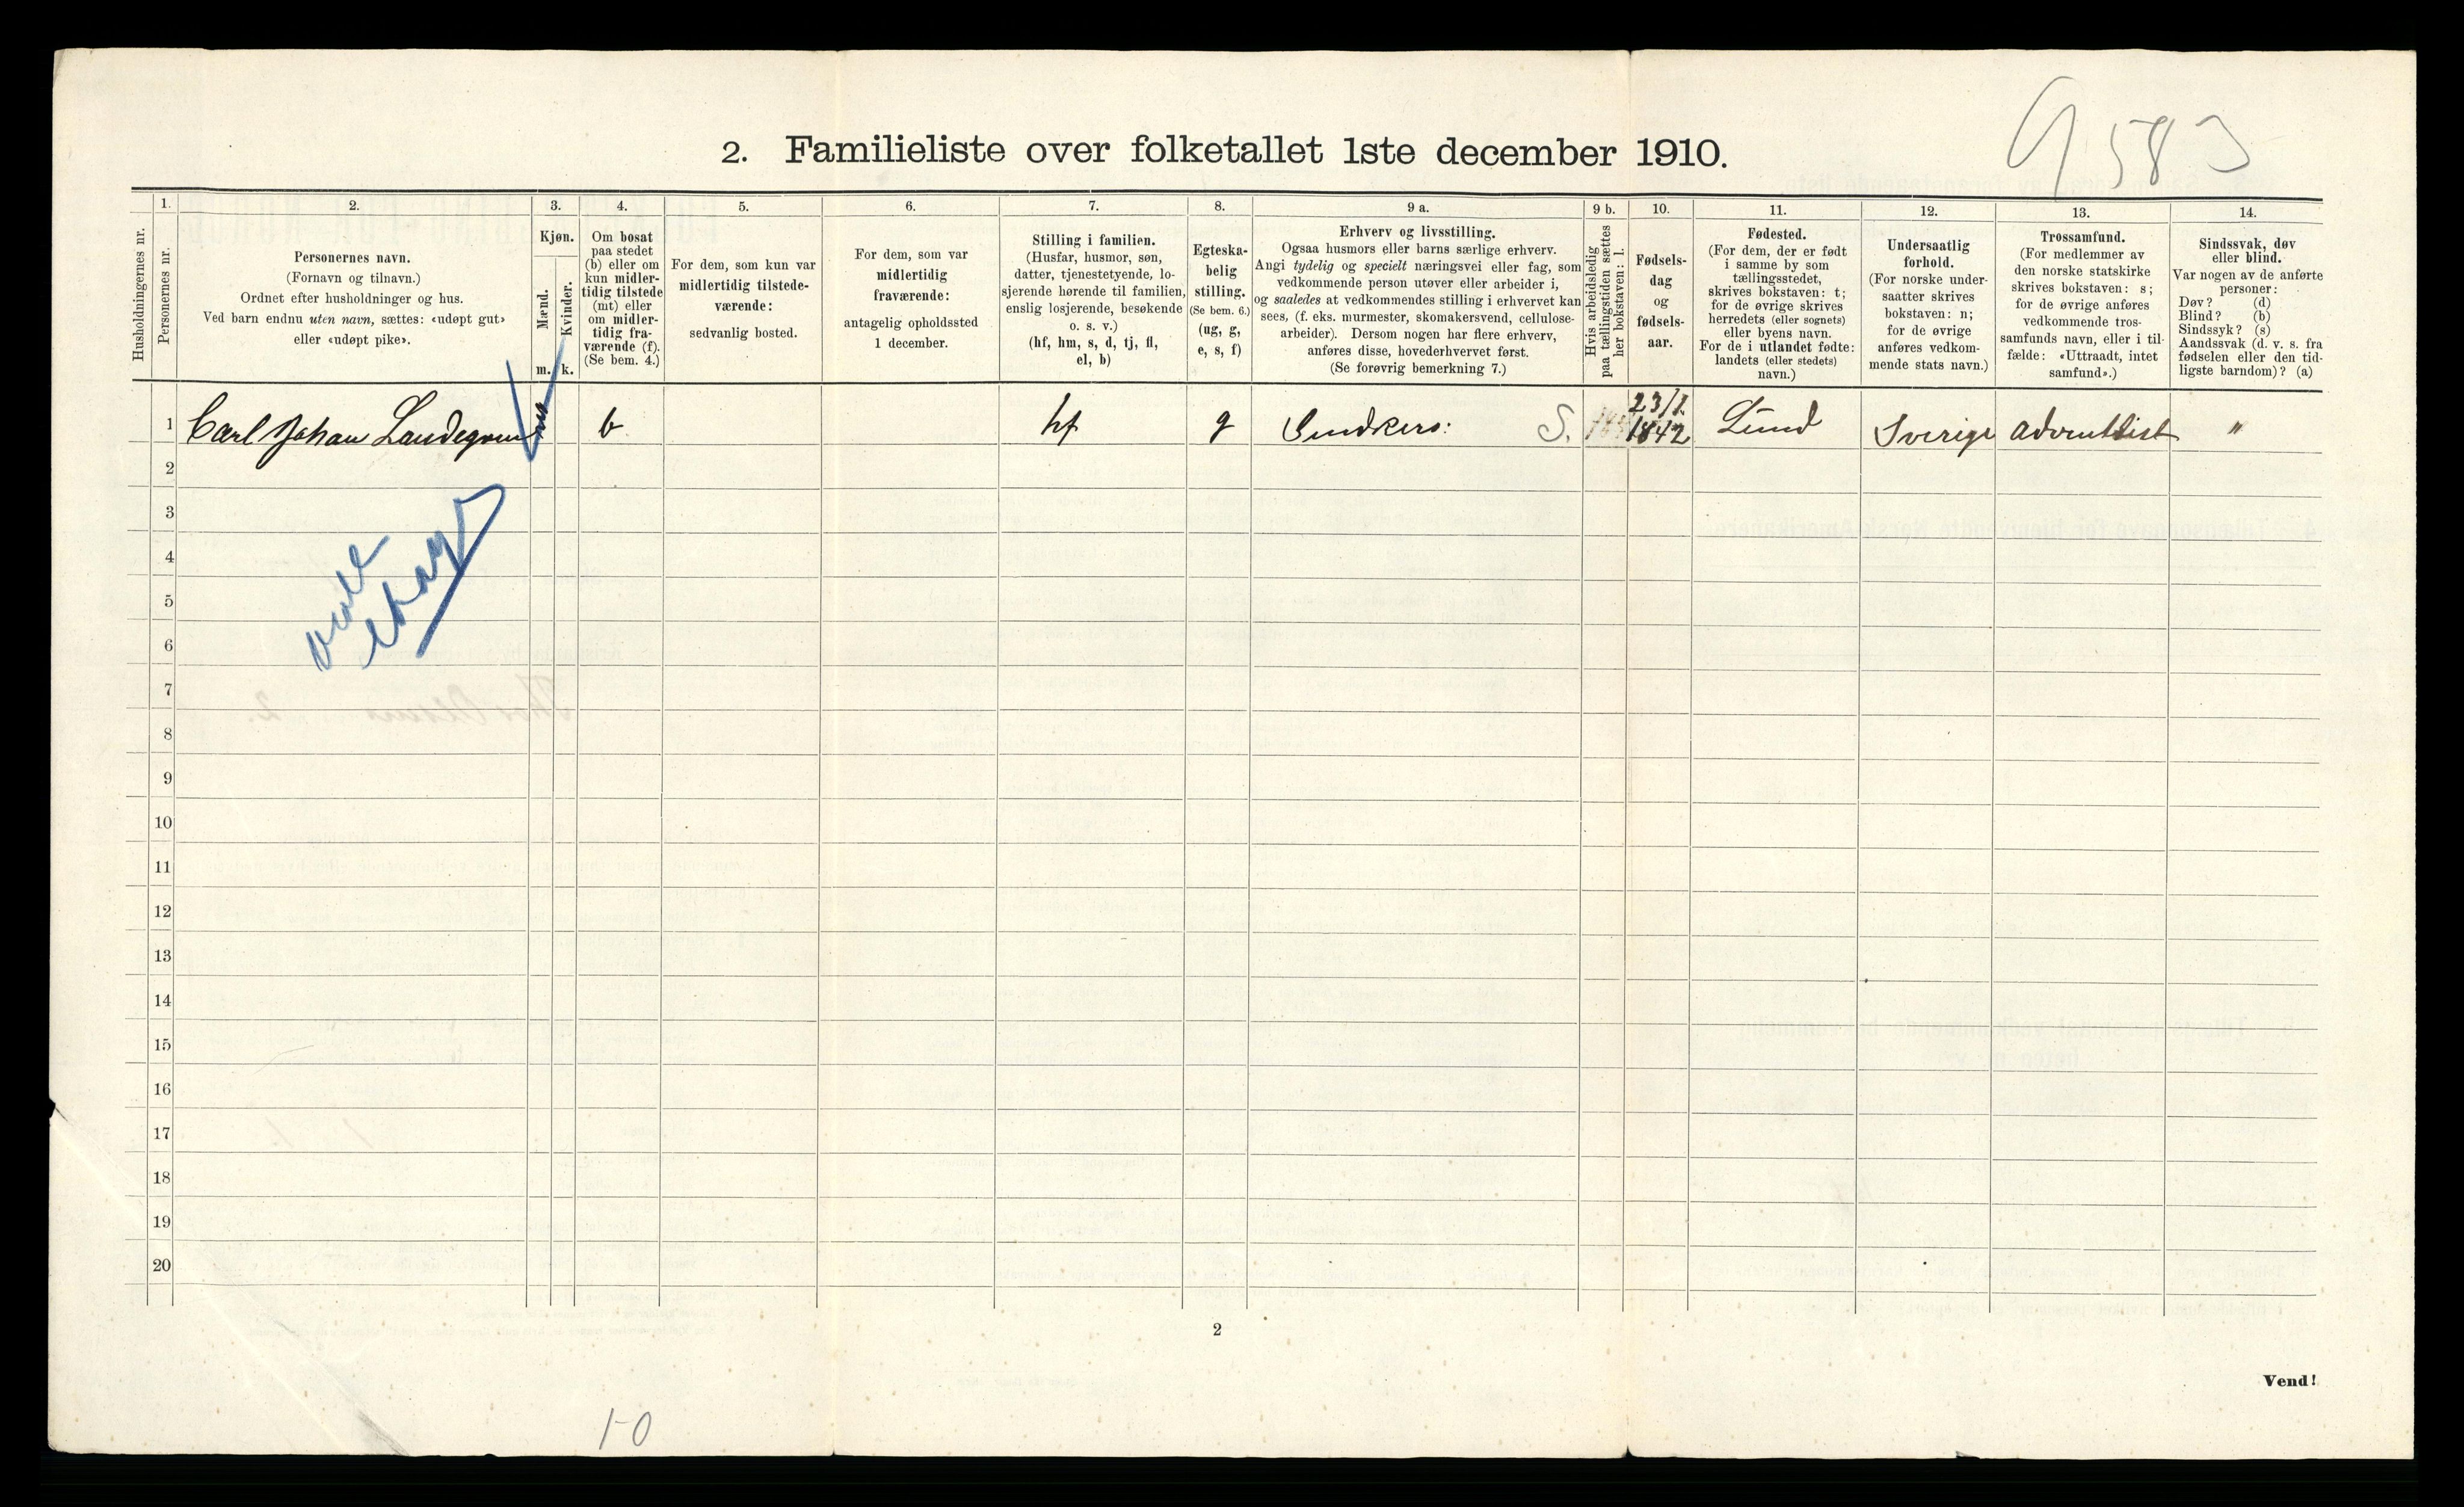 9583
2. Familieliste over folketallet 1ste december 1910.
Husholdningernes nr.
1.
Personernes nr.
2.
Personernes navn.
(Fornavn og tilnavn.)
Ordnet efter husholdninger og hus.
Ved barn endnu uten navn, sættes: «udøpt gut»
eller «udøpt pike».
3.
Kjøn.
Mænd.
Kvinder.
m. k.
4.
Om bosat
paa stedet
(b) eller om
kun midler-
tidig tilstede
(mt) eller
om midler-
tidig fra-
værende (f).
(Se bem. 4.)
5.
For dem, som kun var
midlertidig tilstede-
værende:
sedvanlig bosted.
6.
For dem, som var
midlertidig
fraværende:
antagelig opholdssted
1 december.
7.
Stilling i familien.
(Husfar, husmor, søn,
datter, tjenestetyende, lo-
sjerende hørende til familien,
enslig losjerende, besøkende
o. s. v.)
(hf, hm, s, d, tj, fl,
el, b)
8.
Egteska-
belig
stilling.
(Se bem. 6.)
(ug, g,
e, s, f)
9 a.
Erhverv og livsstilling.
Ogsaa husmors eller barns særlige erhverv.
Angi tydelig og specielt næringsvei eller fag, som
vedkommende person utøver eller arbeider i,
og saaledes at vedkommendes stilling i erhvervet kan
sees, (f. eks. murmester, skomakersvend, cellulose-
arbeider). Dersom nogen har flere erhverv,
anføres disse, hovederhvervet først.
(Se forøvrig bemerkning 7.)
9 b.
Hvis arbeidsledig
paa tællingstiden sættes
her bokstaven: l.
10.
Fødsels-
dag
og
fødsels-
aar.
11.
Fødested.
(For dem, der er født
i samme by som
tællingsstedet,
skrives bokstaven: t;
for de øvrige skrives
herredets (eller sognets)
eller byens navn.
For de i utlandet fødte:
landets (eller stedets)
navn.)
12.
Undersaatlig
forhold.
(For norske under-
saatter skrives
bokstaven: n;
for de øvrige
anføres vedkom-
mende stats navn.)
13.
Trossamfund.
(For medlemmer av
den norske statskirke
skrives bokstaven: s;
for de øvrige anføres
vedkommende tros-
samfunds navn, eller i til-
fælde: «Uttraadt, intet
samfund».)
14.
Sindssvak, døv
eller blind.
Var nogen av de anførte
personer:
Døv? (d)
Blind? (b)
Sindssyk? (s)
Aandssvak (d. v. s. fra
fødselen eller den tid-
ligste barndom)? (a)
1 Carl Johan m b hf g S. 23/1 1842 Lund Sverige adventtist "
2
3
4
5
6
7
8
9
10
11
12
13
14
15
16
17
18
19
20
2
Vend!
1-0